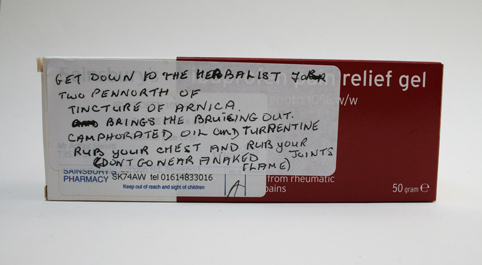 GET DOWN TO THE HERBALIST FOR
TWO PENNORTH OF
TINCTURE OF ARNICA.
BRINGS THE BRUISING OUT.
CAMPHORATED OIL AND TURPENTINE
RUB YOUR CHEST AND RUB YOUR JOINTS
(DONT GO NEAR A NAKED FLAME)
relief gel
w/w
SAINSBURY'S
PHARMACY SK74AW tel 01614833016
Keep out of reach and sight of children
from rheumatic
pains
50 gram e